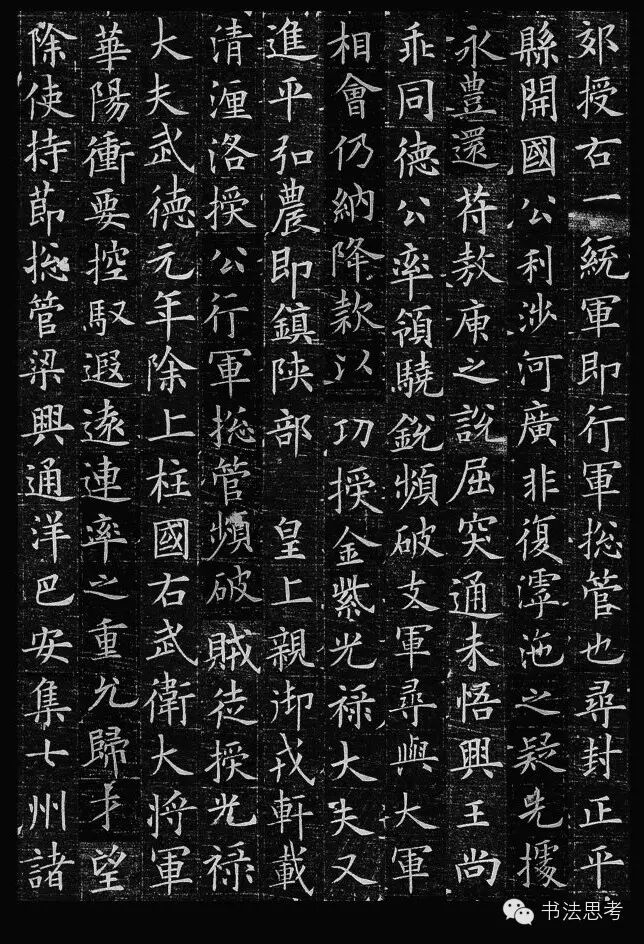 郊授右一統軍即行軍摠管也尋封正平
縣開國公利涉河廣非復滹沲之疑先據
永豊還苻敖庾之說屈突通未悟興王尚
乖同德公率領驍銳頻破支軍尋與大軍
相會仍納降款以功授金紫光禄大夫又
進平弘農即鎮陝部皇上親御戎軒載
清瀍洛授公行軍摠管頻破賊徒授光禄
大夫武德元年除上柱國右武衛大將軍
華陽衝要控馭遐遠連率之重允歸才望
除使持莭摠管梁興通洋巴安集七州諸
书法思考